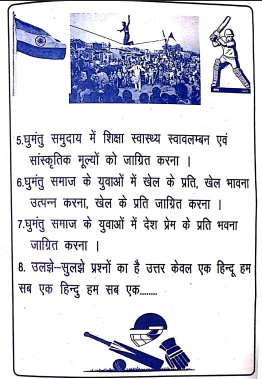 5.घुमंतु समुदाय में शिक्षा स्वास्थ्य स्वावलम्बन एवं
सांस्कृतिक मूल्यों को जाग्रित करना ।
6.घुमंतु समाज के युवाओं में खेल के प्रति, खेल भावना
उत्पन्न करना, खेल के प्रति जाग्रित करना ।
7.घुमंतु समाज के युवाओं में देश प्रेम के प्रति भवना
जाग्रित करना ।
8. उलझे–सुलझे प्रश्नों का है उत्तर केवल एक हिन्दू हम
सब एक हिन्दु हम सब एक........